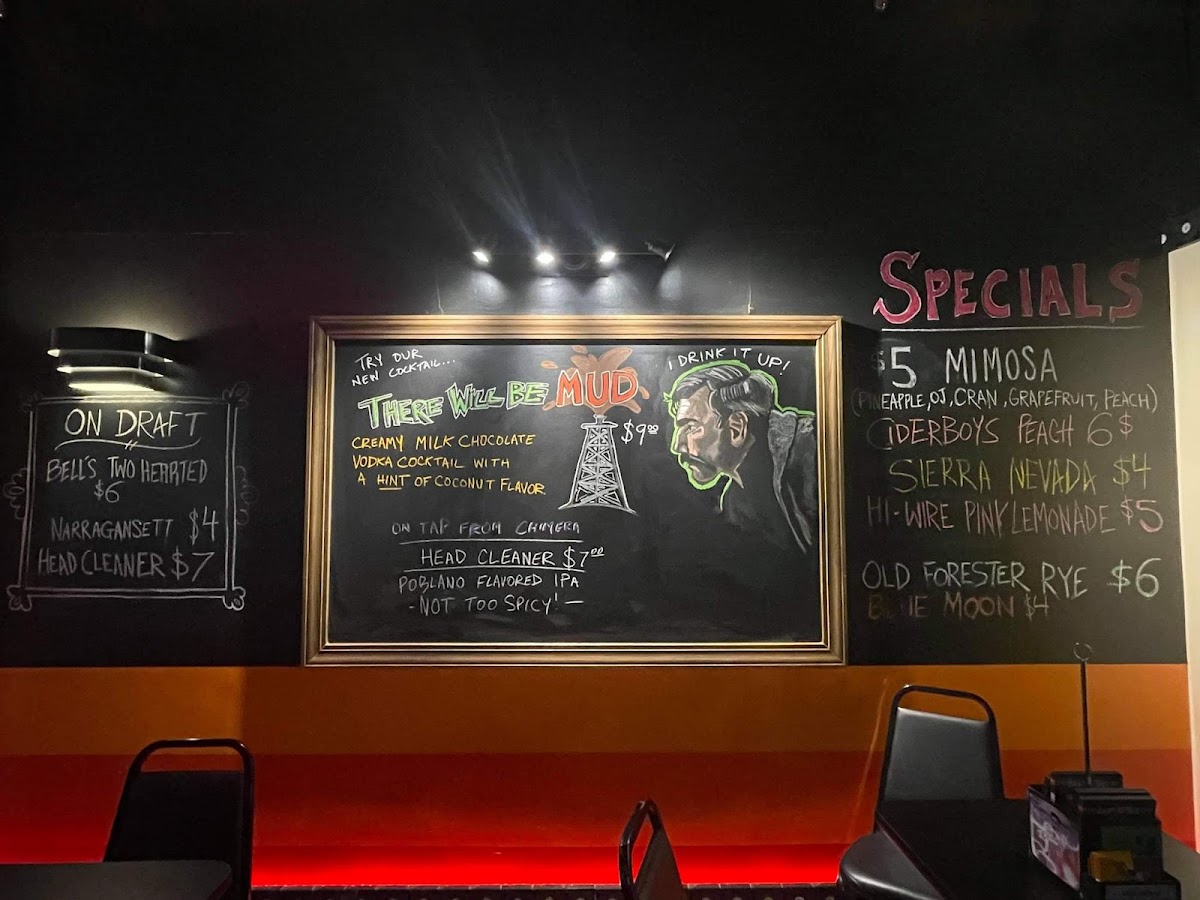 ON DRAFT
BELL'S TWO HEARTED
$6
NARRAGANSETT $4
HEAD CLEANER $7
TRY OUR
NEW COCKTAIL...
THERE WILL BE MUD
$9.00
CREAMY MILK CHOCOLATE
VODKA COCKTAIL WITH
A HINT OF COCONUT FLAVOR
I DRINK IT UP!
ON TAP FROM CHIMERA
HEAD CLEANER $7.00
POBLANO FLAVORED IPA
- NOT TOO SPICY! -
SPECIALS
$5 MIMOSA
(PINEAPPLE, OJ, CRAN, GRAPEFRUIT, PEACH)
CIDERBOYS PEACH 6$
SIERRA NEVADA $4
HI-WIRE PINK LEMONADE $5
OLD FORESTER RYE $6
BLUE MOON $4